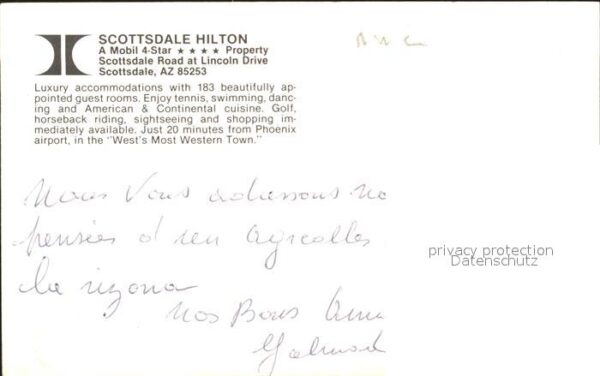 SCOTTSDALE HILTON
A Mobil 4-Star ★ ★ ★ ★ Property
Scottsdale Road at Lincoln Drive
Scottsdale, AZ 85253
Luxury accommodations with 183 beautifully ap-
pointed guest rooms. Enjoy tennis, swimming, danc-
ing and American & Continental cuisine. Golf,
horseback riding, sightseeing and shopping im-
mediately available. Just 20 minutes from Phoenix
airport, in the "West's Most Western Town."
Nous Vous adressons no
pensées d
la rizona
Nos Bons
privacy protection
Datenschutz